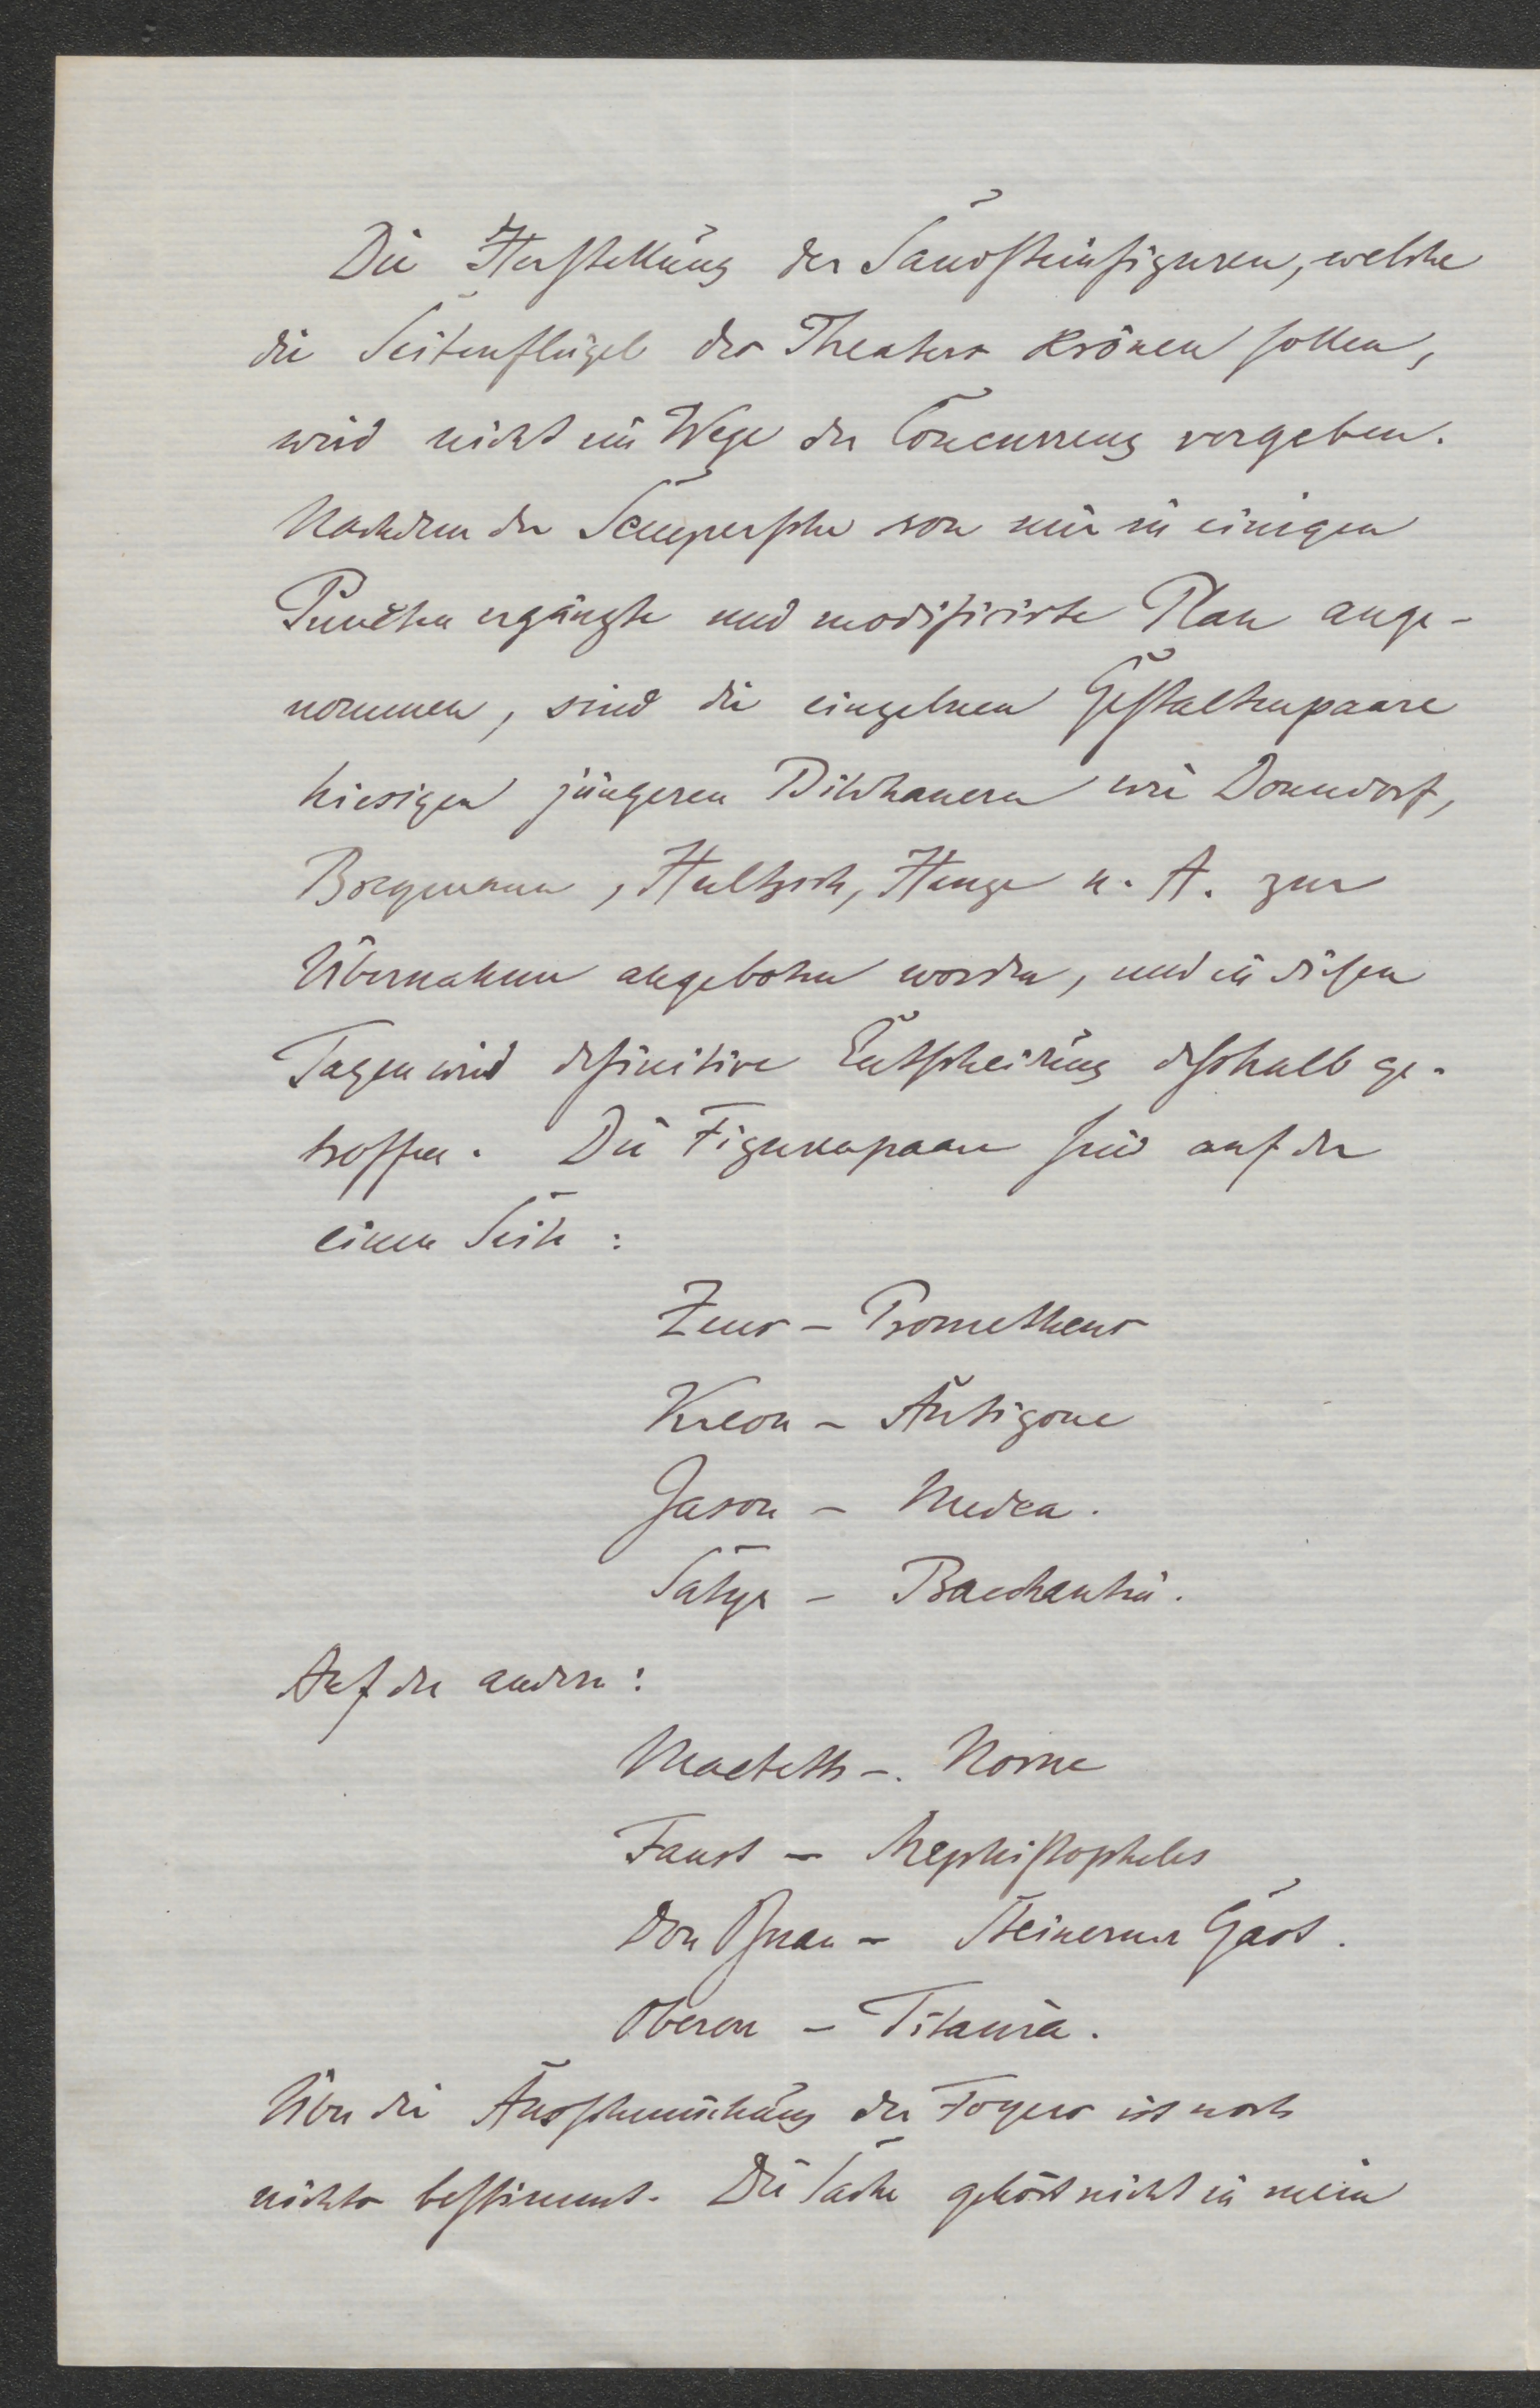 Die Herstellung der Sandsteinfiguren, welche
die Seitenflügel des Theaters krönen sollen,
wird nicht im Wege der Concurrenz vergeben.
Nachdem der Sempersche von mir in einigen
Puncten ergänzte und modificirte Plan ange-
nommen, sind die einzelnen Gestaltenpaare
hiesigen jüngeren Bildhauern wie Donndorf,
Broßmann, Hultzsch, Henze u. A. zur
Übernahme angeboten worden, und in diesen
Tagen wird definitive Entscheidung deßhalb ge-
troffen. Die Figurenpaare sind auf der
einen Seite:
Zeus – Prometheus
Kreon – Antigone
Jason – Medea.
Satyr – Bacchantin.
Auf der andern:
Macbeth –. Norne
Faust – Mephistopheles
Don Juan – Steinerner Gast.
Oberon – Titania.
Über die Ausschmückung der Foyers ist noch
nichts bestimmt. Die Sache gehört nicht in mein